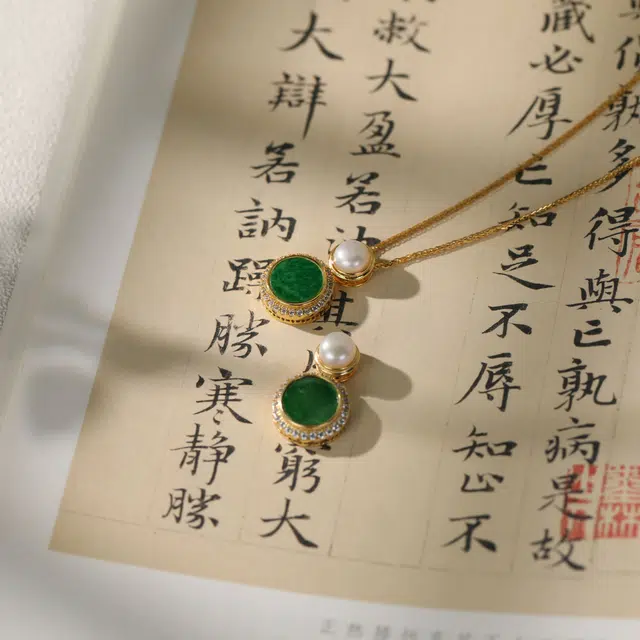 孰多得與亡孰病是故
藏必厚亡知足不辱知止不
敝大盈若沖其窮大
大辯若訥躁勝寒靜勝